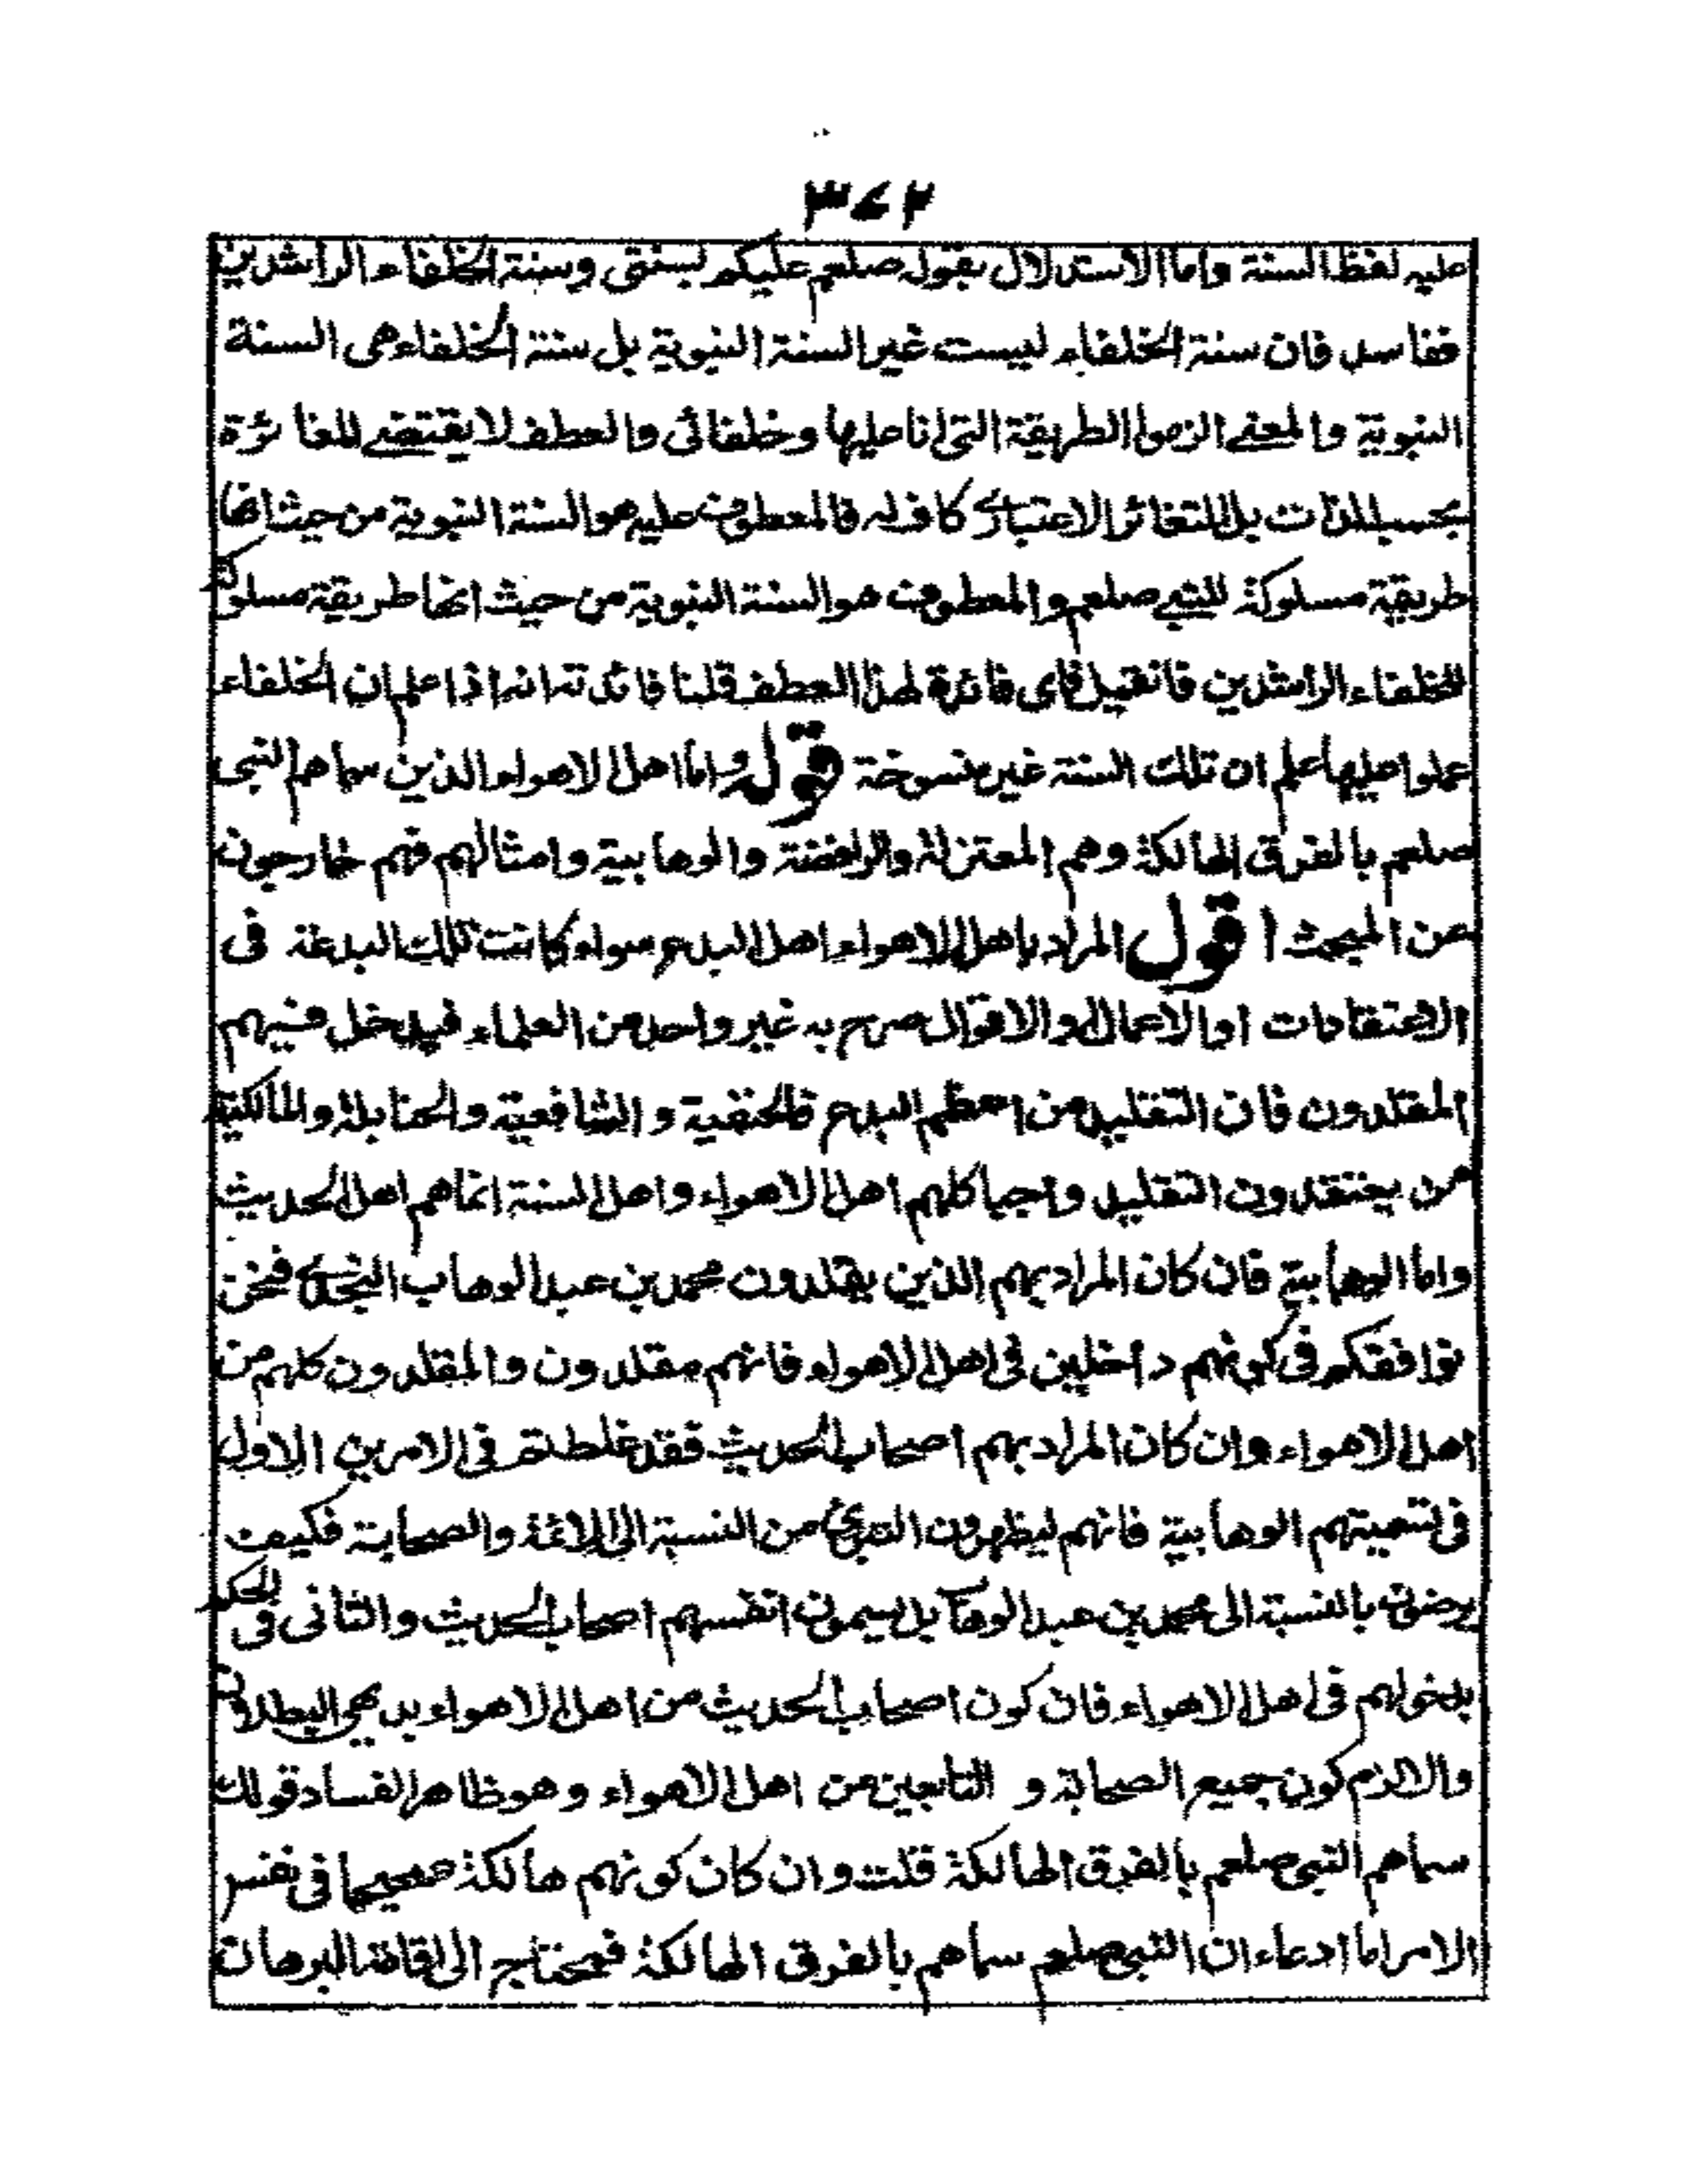 ٣٧٢
عليه لفظ السنة واما الاستدلال بقوله صلعم عليكم بسنتى وسنة الخلفاء الراشدين
ففاسد فان سنة الخلفاء ليست غير السنة النبوية بل سنة الخلفاء هى السنة
النبوية والمعنے الزموا الطريقة التى انا عليها وخلفائى والعطف لا يقتضے المغائرة
بحسب الذات بل التغائر الاعتبارى كاف له فالمعطوف عليه هو السنة النبوية من حيث انها
طريقة مسلوكة للنبے صلعم والمعطوف هو السنة النبوية من حيث انها طريقة مسلوكة
للخلفاء الراشدين فان قيل فاى فائدة لهذا العطف قلنا فائدته انه اذا علم ان الخلفاء
عملوا عليها علم ان تلك السنة غير منسوخة قوله واما اهل الاهواء الذين سماهم النبى
صلعم بالفرق الهالكة وهم المعتزلة والرافضة والوهابية وامثالهم فهم خارجون
عن المبحث اقول المراد باهل الاهواء اهل البدع سواء كانت تلك البدعة فى
الاعتقادات او الاعمال او الاقوال صرح به غير واحد من العلماء فيدخل فيهم
المقلدون فان التقليد من اعظم البدع فالحنفية والشافعية والحنابلة والمالكية
ممن يعتقدون التقليد واجبا كلهم اهل الاهواء واهل السنة انما هم اهل الحديث
واما الوهابية فان كان المراد بهم الذين يقلدون محمد بن عبد الوهاب النجدى فنحن
نوافقكم فى كونهم داخلين فى اهل الاهواء فانهم مقلدون والمقلدون كلهم من
اهل الاهواء وان كان المراد بهم اصحاب الحديث فقد غلطتم فى الامرين الاول
فى تسميتهم الوهابية فانهم ليظهرون التبرئ من النسبة الى الائمة والصحابة فكيف
يرضون بالنسبة الى محمد بن عبد الوهاب بل يسمون انفسهم اصحاب الحديث والثانى فى الحكم
بدخولهم فى اهل الاهواء فان كون اصحاب الحديث من اهل الاهواء بديهى البطلان
والا لزم كون جميع الصحابة و التابعين من اهل الاهواء وهو ظاهر الفساد قولك
سماهم النبى صلعم بالفرق الهالكة قلت وان كان كونهم هالكة صحيحا فى نفس
الامر اما ادعاء ان النبى صلعم سماهم بالفرق الهالكة فمحتاج الى اقامة البرهان